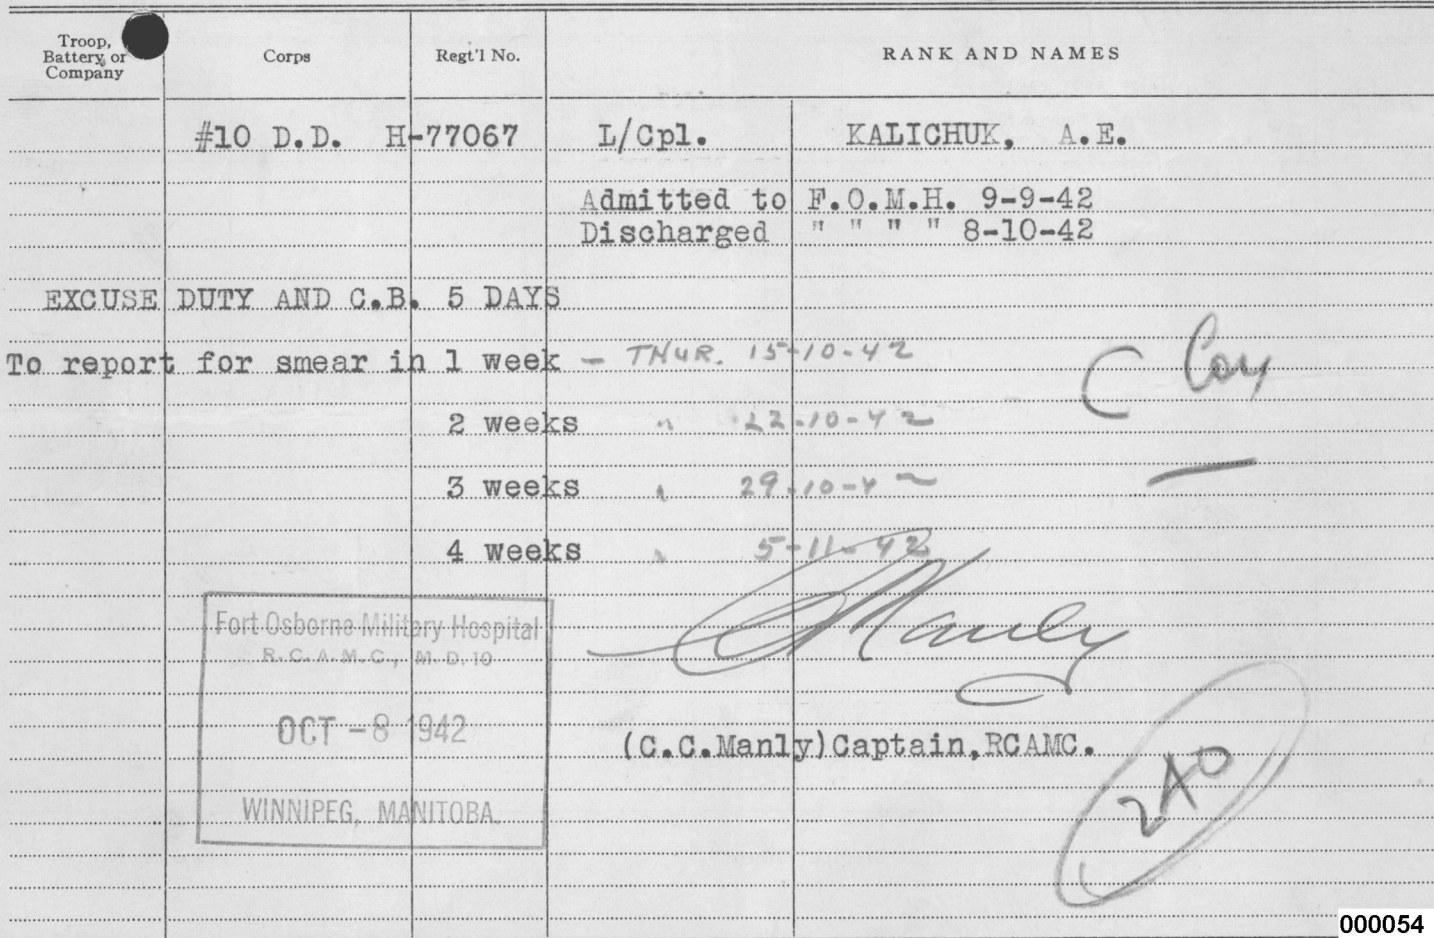 Troop, Battery, or Company Corps Regt'l No. RANK AND NAMES
#10 D.D. H-77067 L/Cpl. KALICHUK, A.E.
Admitted to F.O.M.H. 9-9-42
Discharged " " " " 8-10-42
EXCUSE DUTY AND C.B. 5 DAYS
To report for smear in 1 week - THUR. 15-10-42
C Coy
2 weeks " 22-10-42
3 weeks " 29-10-42
4 weeks " 5-11-42
CC Manly
Fort Osborne Military Hospital
R.C.A.M.C., M.D.10
OCT -8 1942
WINNIPEG, MANITOBA.
(C.C.Manly)Captain,RCAMC.
000054